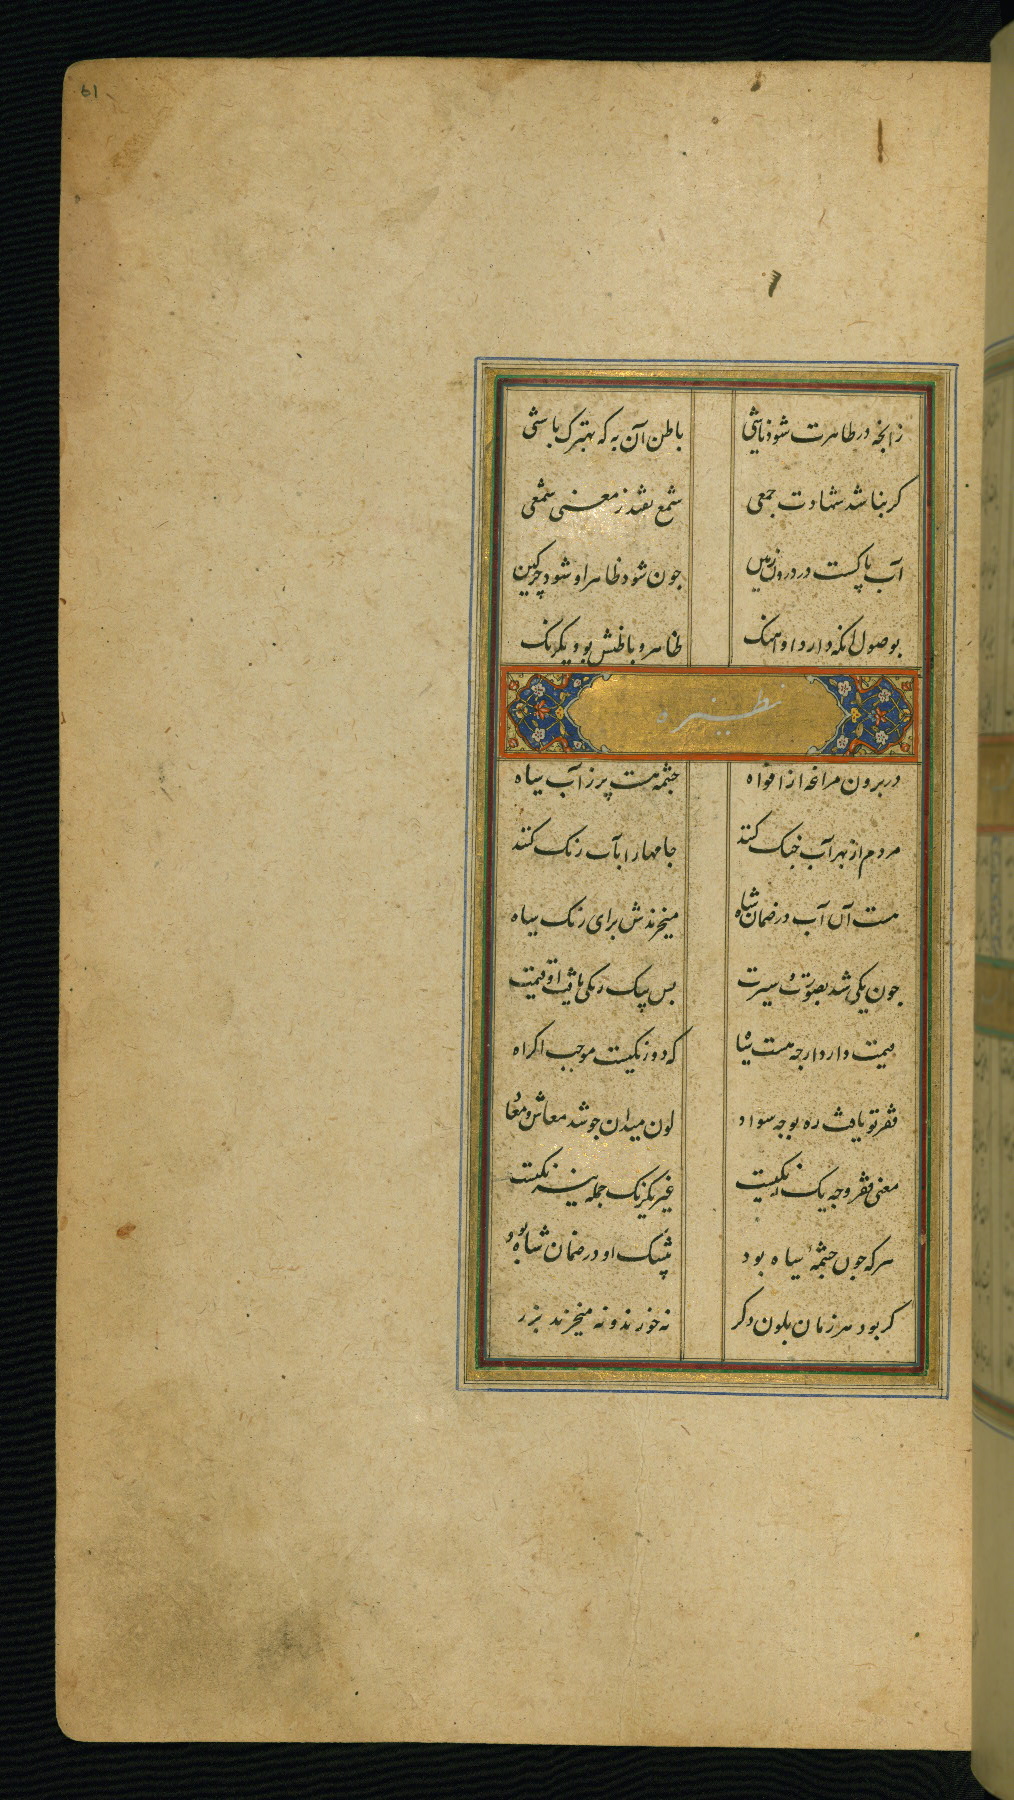 61
زانچه در ظاهرت شود ناشی باطن آن به که بهترک باشی
کر بنا شد شهادت جمعی شمع نقند ز معنی شمعی
آب پاکست در درون زمین جون شود ظاهر او شود چرکین
بوصول آنکه دارد او آهنک ظاهر و باطنش بود یکرنک
نظیره
در برون مراغه از افواه جشمه هست پر ز آب سیاه
مردم از بهر آب جنک کنند جامها را بآب رنک کنند
هست آن آب در ضمان شاه میخرندش برای رنک سیاه
جون یکی شد بصورت و سیرت بس بیک رنکی یافت او قیمت
قیمت دارد ارجه هست سیاه که دو رنکیست موجب اکراه
فقر تو یافت ره بوجه سواد لون میدان جو شد معاش و معاد
معنی فقر وجه یک رنکیست غیر یکرنک جمله نیرنکیست
هر که جون جشمه سیاه بود بیشک او در ضمان شاه بود
کر بود هر زمان بلون دکر نه خورند و نه میخرند بزر